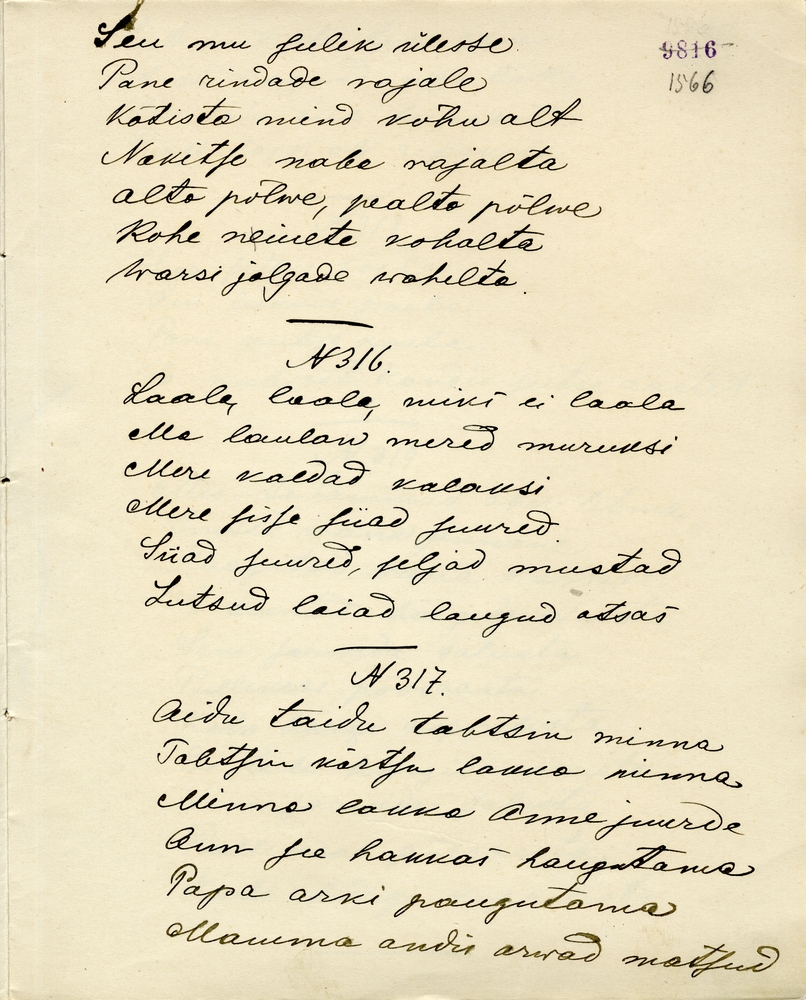 Seu mu sulik ülesse
9816
1566
Pane rindade rajale
Kötista mind kõhu alt
Näkitse naba rajalta
alta põlwe, pealta põlwe
Kohe neiuete kohalta
Warsi jalgade wahelta.
N 316.
Laala, laala, miks ei laala
Ma laulan mered muruksi
Mere kaldad kalaksi
Mere sisse siiad suured.
Siiad suured, seljad mustad
Lutsud laiad laugud otsas
N 317.
Aidu taidu tahtsin minna
Tahtsin kõrtsu lakka minna
Minna lakka Anne juurde
Ann see hakkas haugutama
Papa arki paugutama
Mamma andis arwad matsud